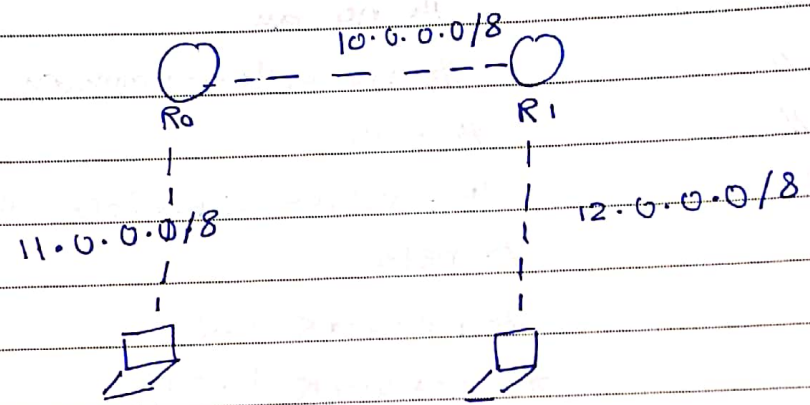 10.0.0.0/8
R0
R1
11.0.0.0/8
12.0.0.0/8